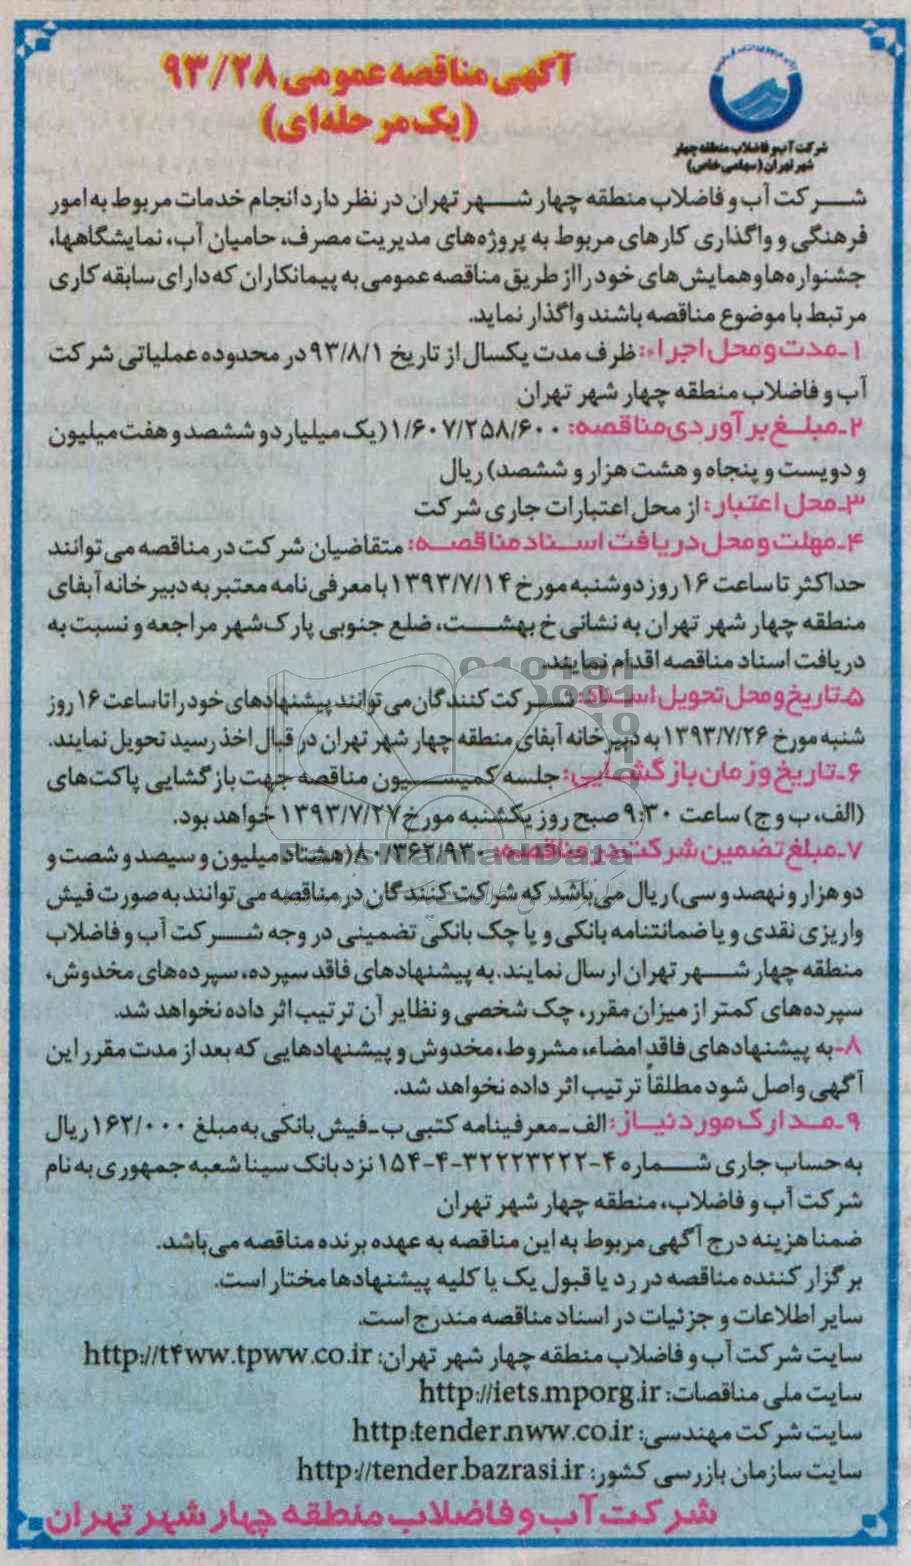 آگهی مناقصه عمومی ۹۳/۲۸
(یک مرحله‌ای)
شرکت آب و فاضلاب منطقه چهار
شهر تهران (سهامی خاص)
شرکت آب و فاضلاب منطقه چهار شهر تهران در نظر دارد انجام خدمات مربوط به امور
فرهنگی و واگذاری کارهای مربوط به پروژه‌های مدیریت مصرف، حامیان آب، نمایشگاهها،
جشنواره‌ها و همایش‌های خود را از طریق مناقصه عمومی به پیمانکاران که دارای سابقه کاری
مرتبط با موضوع مناقصه باشند واگذار نماید.
۱-مدت و محل اجراء: ظرف مدت یکسال از تاریخ ۹۳/۸/۱ در محدوده عملیاتی شرکت
آب و فاضلاب منطقه چهار شهر تهران
۲-مبلغ برآوردی مناقصه: ۱/۶۰۷/۲۵۸/۶۰۰ (یک میلیارد و ششصد و هفت میلیون
و دویست و پنجاه و هشت هزار و ششصد) ریال
۳-محل اعتبار: از محل اعتبارات جاری شرکت
۴-مهلت و محل دریافت اسناد مناقصه: متقاضیان شرکت در مناقصه می‌توانند
حداکثر تا ساعت ۱۶ روز دوشنبه مورخ ۱۳۹۳/۷/۱۴ با معرفی نامه معتبر به دبیرخانه آبفای
منطقه چهار شهر تهران به نشانی خ بهشت، ضلع جنوبی پارک‌شهر مراجعه و نسبت به
دریافت اسناد مناقصه اقدام نمایند.
۵-تاریخ و محل تحویل اسناد: شرکت کنندگان می‌توانند پیشنهادهای خود را تا ساعت ۱۶ روز
شنبه مورخ ۱۳۹۳/۷/۲۶ به دبیرخانه آبفای منطقه چهار شهر تهران در قبال اخذ رسید تحویل نمایند.
۶-تاریخ و زمان بازگشایی: جلسه کمیسیون مناقصه جهت بازگشایی پاکت‌های
(الف، ب و ج) ساعت ۹:۳۰ صبح روز یکشنبه مورخ ۱۳۹۳/۷/۲۷ خواهد بود.
۷-مبلغ تضمین شرکت در مناقصه: ۸۰/۳۶۲/۹۳۰ (هشتاد میلیون و سیصد و شصت و
دو هزار و نهصد و سی) ریال می‌باشد که شرکت کنندگان در مناقصه می‌توانند به صورت فیش
واریزی نقدی و یا ضمانتنامه بانکی و یا چک بانکی تضمینی در وجه شرکت آب و فاضلاب
منطقه چهار شهر تهران ارسال نمایند. به پیشنهادهای فاقد سپرده، سپرده‌های مخدوش،
سپرده‌های کمتر از میزان مقرر، چک شخصی و نظایر آن ترتیب اثر داده نخواهد شد.
۸-به پیشنهادهای فاقد امضاء، مشروط، مخدوش و پیشنهادهایی که بعد از مدت مقرر این
آگهی واصل شود مطلقاً ترتیب اثر داده نخواهد شد.
۹-مدارک مورد نیاز: الف-معرفینامه کتبی ب-فیش بانکی به مبلغ ۱۶۲/۰۰۰ ریال
به حساب جاری شماره ۴-۳۲۲۲۳۲۲۲-۴-۱۵۴ نزد بانک سینا شعبه جمهوری به نام
شرکت آب و فاضلاب، منطقه چهار شهر تهران
ضمنا هزینه درج آگهی مربوط به این مناقصه به عهده برنده مناقصه می‌باشد.
برگزار کننده مناقصه در رد یا قبول یک یا کلیه پیشنهادها مختار است.
سایر اطلاعات و جزئیات در اسناد مناقصه مندرج است.
سایت شرکت آب و فاضلاب منطقه چهار شهر تهران: http://t۴ww.tpww.co.ir
سایت ملی مناقصات: http://iets.mporg.ir
سایت شرکت مهندسی: http:tender.nww.co.ir
سایت سازمان بازرسی کشور: http://tender.bazrasi.ir
شرکت آب و فاضلاب منطقه چهار شهر تهران